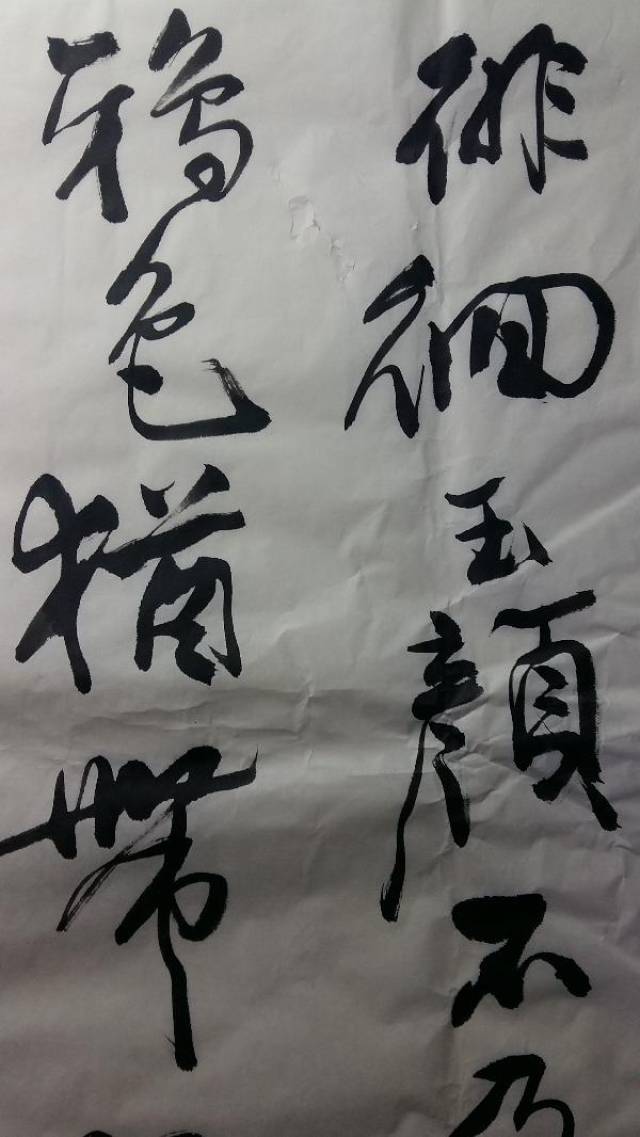 徘徊玉顏不
鴉色猶帶